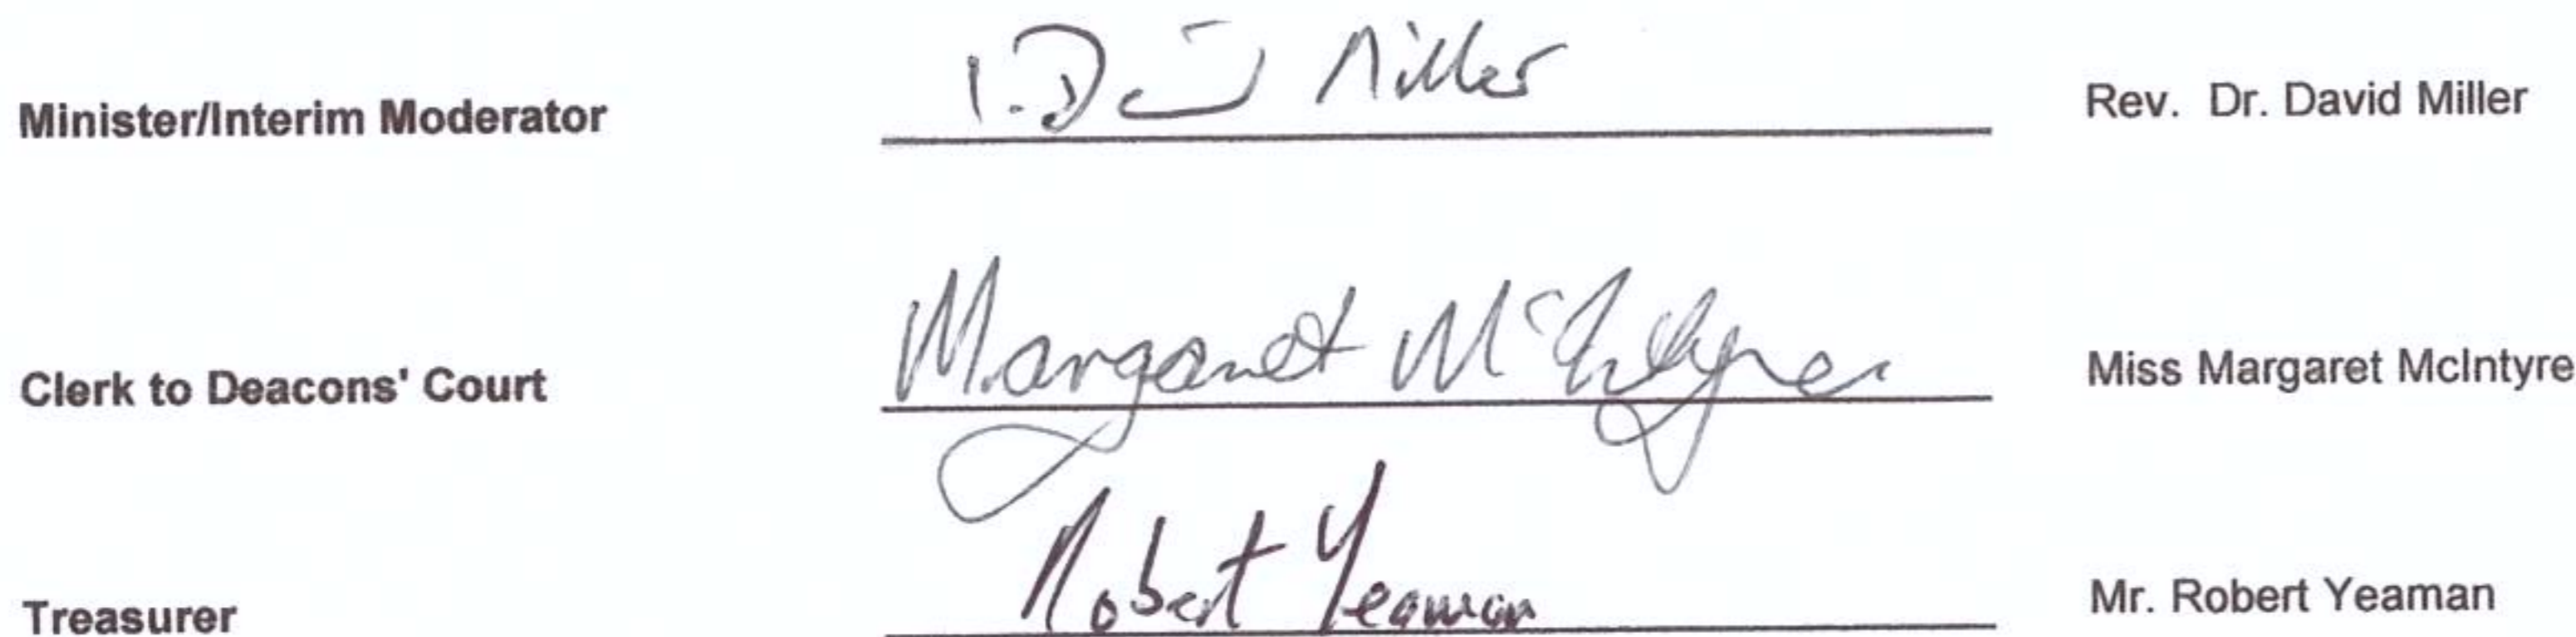 Minister/Interim Moderator I. David Miller Rev. Dr. David Miller
Clerk to Deacons' Court Margaret McIntyre Miss Margaret McIntyre
Treasurer Robert Yeaman Mr. Robert Yeaman